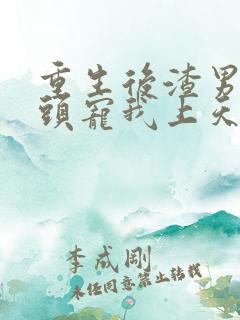 重生後渣男
頭寵我上天
李成剛
未任同意禁止转载